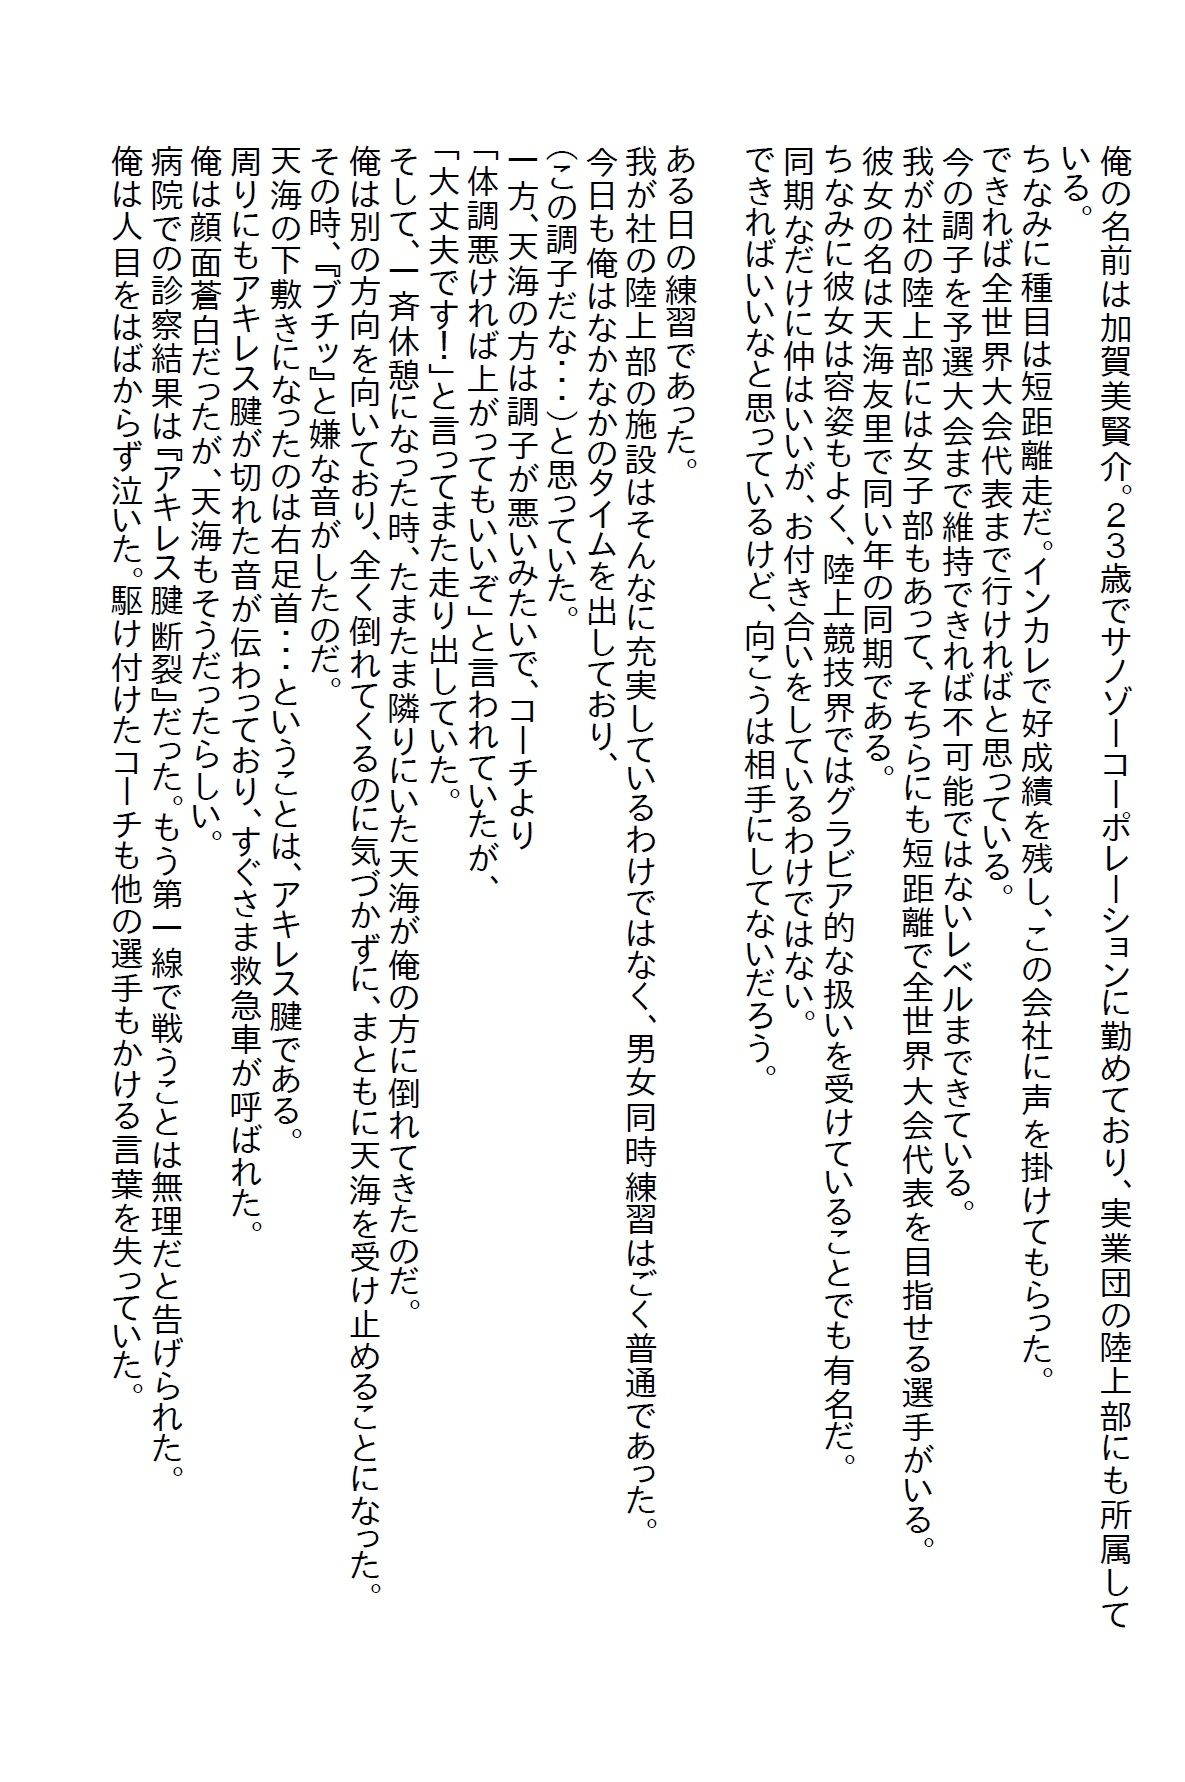 俺の名前は加賀美賢介。２３歳でサノゾーコーポレーションに勤めており、実業団の陸上部にも所属して
いる。
ちなみに種目は短距離走だ。インカレで好成績を残し、この会社に声を掛けてもらった。
できれば全世界大会代表まで行ければと思っている。
今の調子を予選大会まで維持できれば不可能ではないレベルまできている。
我が社の陸上部には女子部もあって、そちらにも短距離で全世界大会代表を目指せる選手がいる。
彼女の名は天海友里で同い年の同期である。
ちなみに彼女は容姿もよく、陸上競技界ではグラビア的な扱いを受けていることでも有名だ。
同期なだけに仲はいいが、お付き合いをしているわけではない。
できればいいなと思っているけど、向こうは相手にしてないだろう。
ある日の練習であった。
我が社の陸上部の施設はそんなに充実しているわけではなく、男女同時練習はごく普通であった。
今日も俺はなかなかのタイムを出しており、
（この調子だな・・・）と思っていた。
一方、天海の方は調子が悪いみたいで、コーチより
「体調悪ければ上がってもいいぞ」と言われていたが、
「大丈夫です！」と言ってまた走り出していた。
そして、一斉休憩になった時、たまたま隣りにいた天海が俺の方に倒れてきたのだ。
俺は別の方向を向いており、全く倒れてくるのに気づかずに、まともに天海を受け止めることになった。
その時、『ブチッ』と嫌な音がしたのだ。
天海の下敷きになったのは右足首・・・ということは、アキレス腱である。
周りにもアキレス腱が切れた音が伝わっており、すぐさま救急車が呼ばれた。
俺は顔面蒼白だったが、天海もそうだったらしい。
病院での診察結果は『アキレス腱断裂』だった。もう第一線で戦うことは無理だと告げられた。
俺は人目をはばからず泣いた。駆け付けたコーチも他の選手もかける言葉を失っていた。